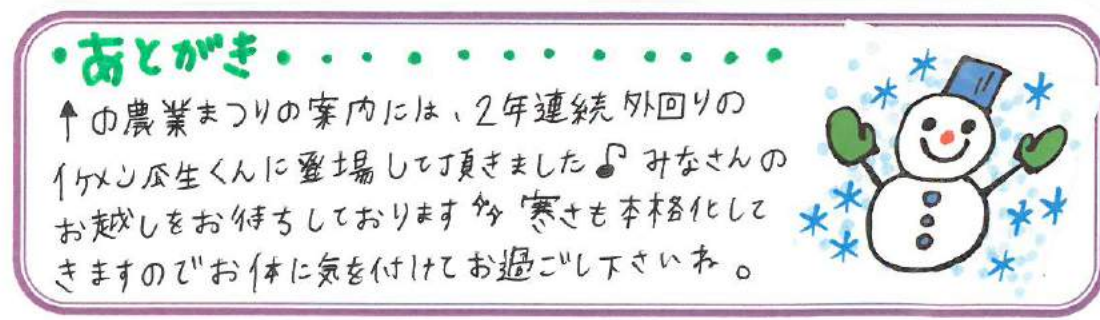 ・あとがき・・・・・・・・・・・・
↑の農業まつりの案内には、2年連続外回りの
イケメン瓜生くんに登場して頂きました♪ みなさんの
お越しをお待ちしております 寒さも本格化して
きますのでお体に気を付けてお過ごし下さいね。